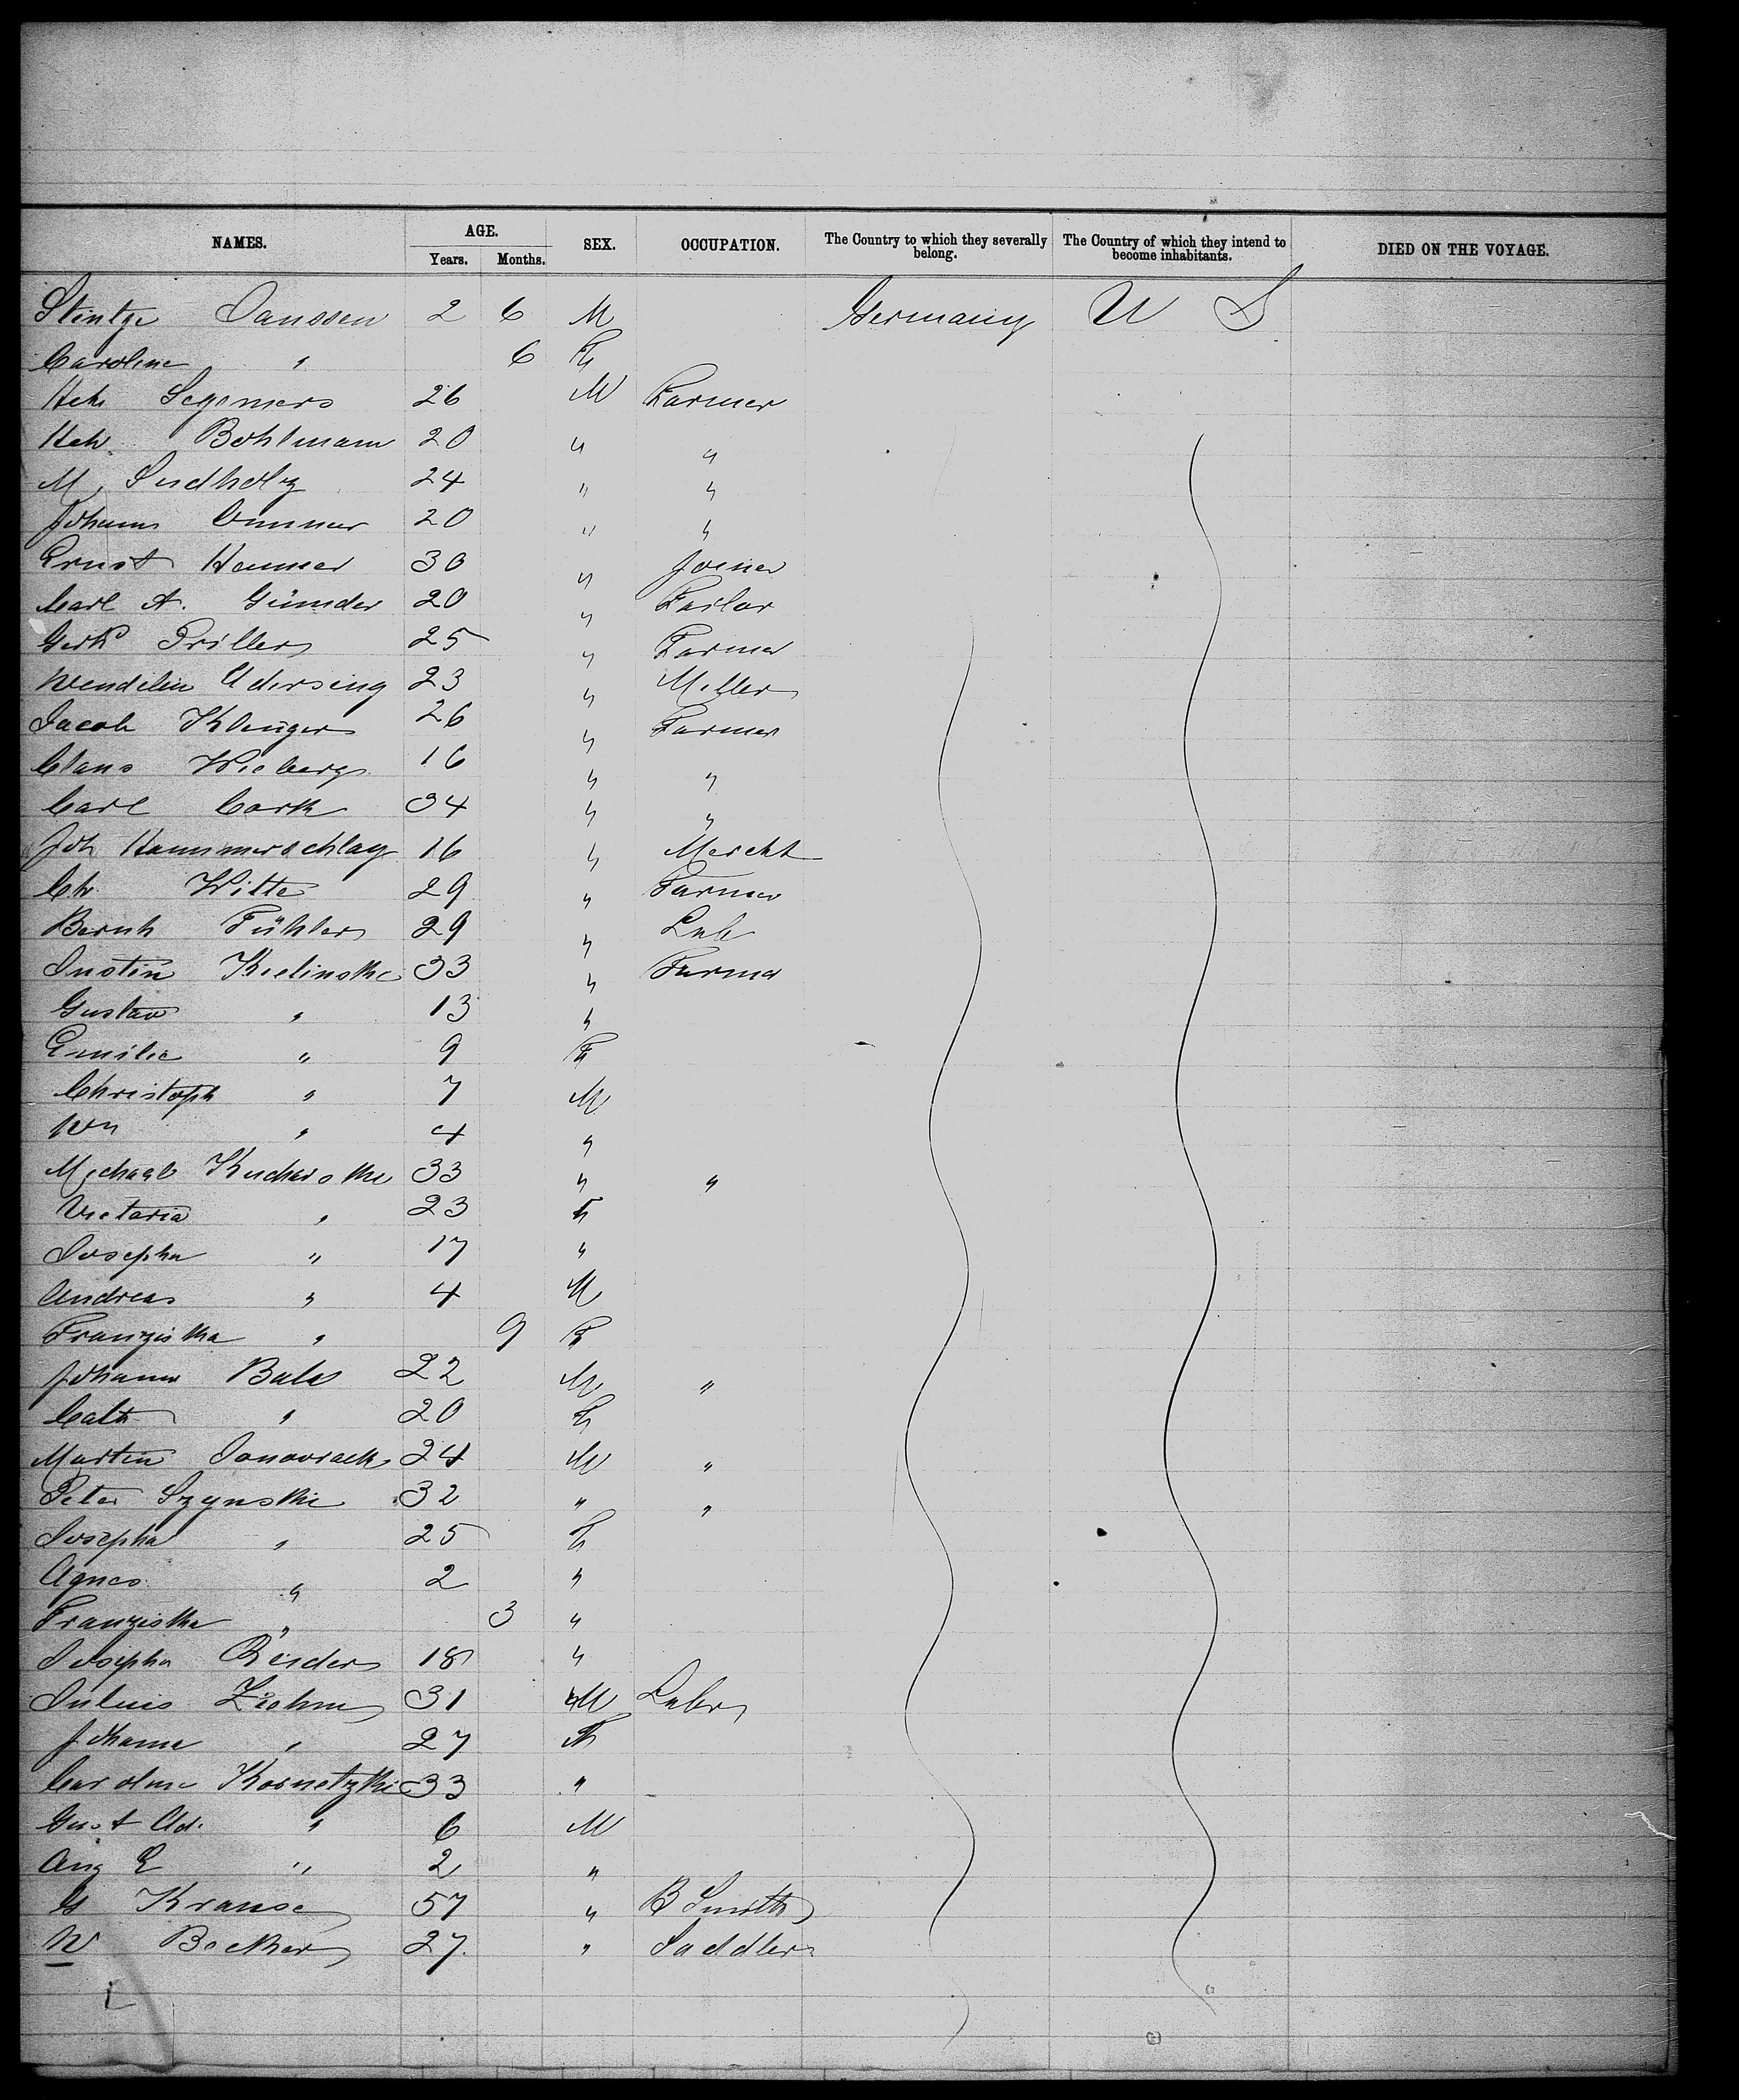 NAMES. AGE. Years. Months. SEX. OCCUPATION. The Country to which they severally belong. The Country of which they intend to become inhabitants. DIED ON THE VOYAGE.
Stintje Janssen 2 6 M Germany U S
Caroline " 6 F
Heh Segemers 26 M Farmer
Heh. Bohlmann 20 " "
M Sudholz 24 " "
Johann 20 " "
Ernst Hammer 30 " Joiner
Carl A. Günder 20 " Tailor
Gerh Priller 25 " Farmer
Wendelin Udersing 23 " Miller
Jacob Klenger 26 " Farmer
Claus Wieberg 16 " "
Carl Cork 34 " "
Joh Hammerschlag 16 " Mercht
Ch. Witte 29 " Farmer
Bernh Fühler 29 " Lab
Justin Kielinske 33 " Farmer
Gustav " 13 "
Emilie " 9 F
Christoph " 7 M
Wm " 4 "
Michael Kucharske 33 " "
Victoria " 23 F
Josepha " 17 "
Andreas " 4 M
Franziska " 9 F
Johann Bula 22 M "
Cath " 20 F
Martin Janowrack 24 M "
Peter Szynski 32 " "
Josepha " 25 F
Agnes " 2 "
Franziska " 3 "
Josepha Reider 18 "
Julius Ziehm 31 M Labr
Johanna " 27 F
Caroline Kosnetzki 33 "
Gust Ad. " 6 M
Aug E " 2 "
G Krause 57 " B Smith
W Becker 27 " Saddler